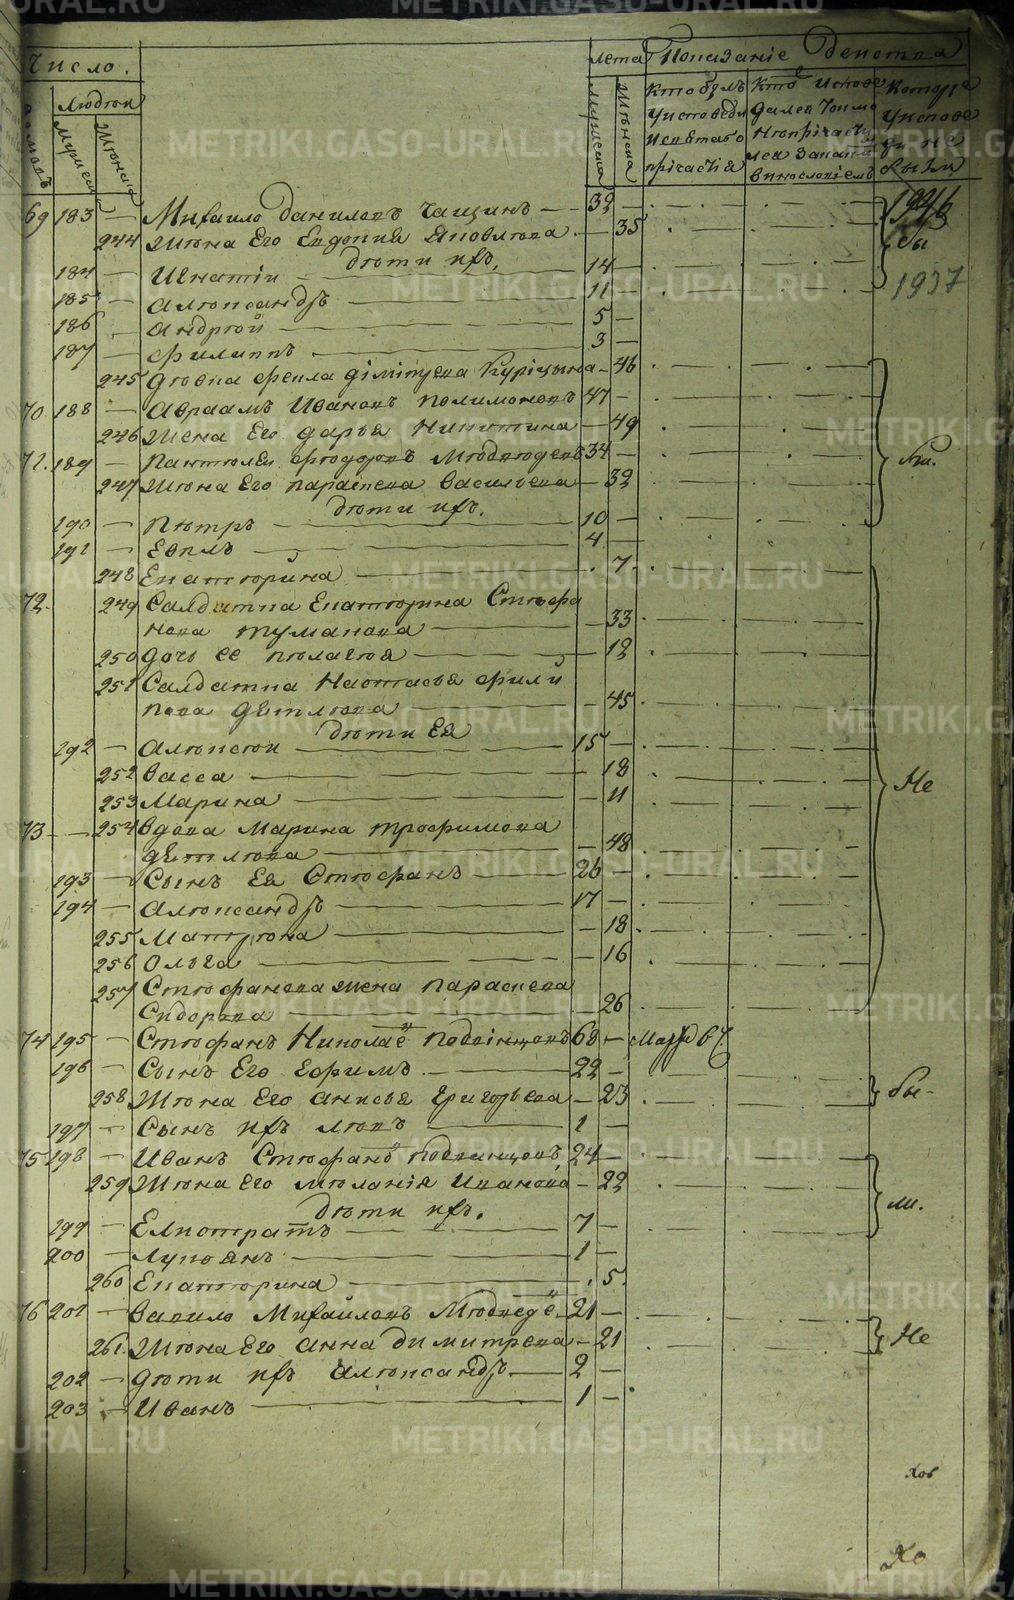 Число.
лета Показаніе Действа
Людей
домовъ
Мужеска
Женска
мужеска
женска
кто былъ
у исповеди
и святаго
причастія
кто Испове
дался токмо
не причасти
лся за каки
винословіемъ
которые
у испове
ди не
были
69 183 — Михаило даниловъ Чащинъ — 39 —
244 Жена Его Евдокия Яковлева — 35
дети ихъ
184 — Игнатіи — 14 —
185 — Александръ — 11
186 — Андрей — 5 —
187 — Филиппъ — 3 —
245 Девка Фекла дімитрева Куріцына — 46
70 188 — Авраамъ Ивановъ Филимоновъ 47 —
246 Жена Его дарья Никитина — 49
71. 189 — Пантелеи Федоровъ Медведевъ 34 —
247 Жена Его параскева васильева — 39
дети ихъ.
190 — Петръ — 10 —
191 — Евплъ — 4 —
248 Екатерина — 7
72. 249 Салдатка Екатерина Стефа
нова туманова — 33
250 дочь ее пелагея — 12
251 Салдатка Настасья фили
пова детлева — 45
дети Ея
192 — Алексеи — 15 —
252 васса — 18
253 Марина — 11
73 — 254 вдова Марина трофимова
детлева — 48
193 — Сынъ Ея Стефанъ — 26 —
194 — Александръ — 17 —
255 Матрена — 18
256 Ольга — 16
257 Стефанова жена параскева
Сидорова — 26
74 195 — Стефанъ Николаё Подкінцовъ 68 —
196 — Сынъ Его Ефимъ — 22 —
258 Жена Его анисья григорьева — 23
197 — Сынъ ихъ левъ — 1 —
75 198 — Иванъ Стефанӧ подкинцовъ 24 —
259 Жена Его меланія Иванова — 22
дети ихъ.
199 — Елистратъ — 7 —
200 — Лукоянъ — 1 —
260 Екатерина — 5
76 201 — вавило Михаиловъ Медведё — 21 —
261 Жена Его анна димитрева — 21
202 — дети ихъ Александръ — 2 —
203 — Иванъ — 1 —
бы
1937
ли.
Не
бы-
ли.
Не
Хов
Хо
METRIKI.GASO-URAL.RU